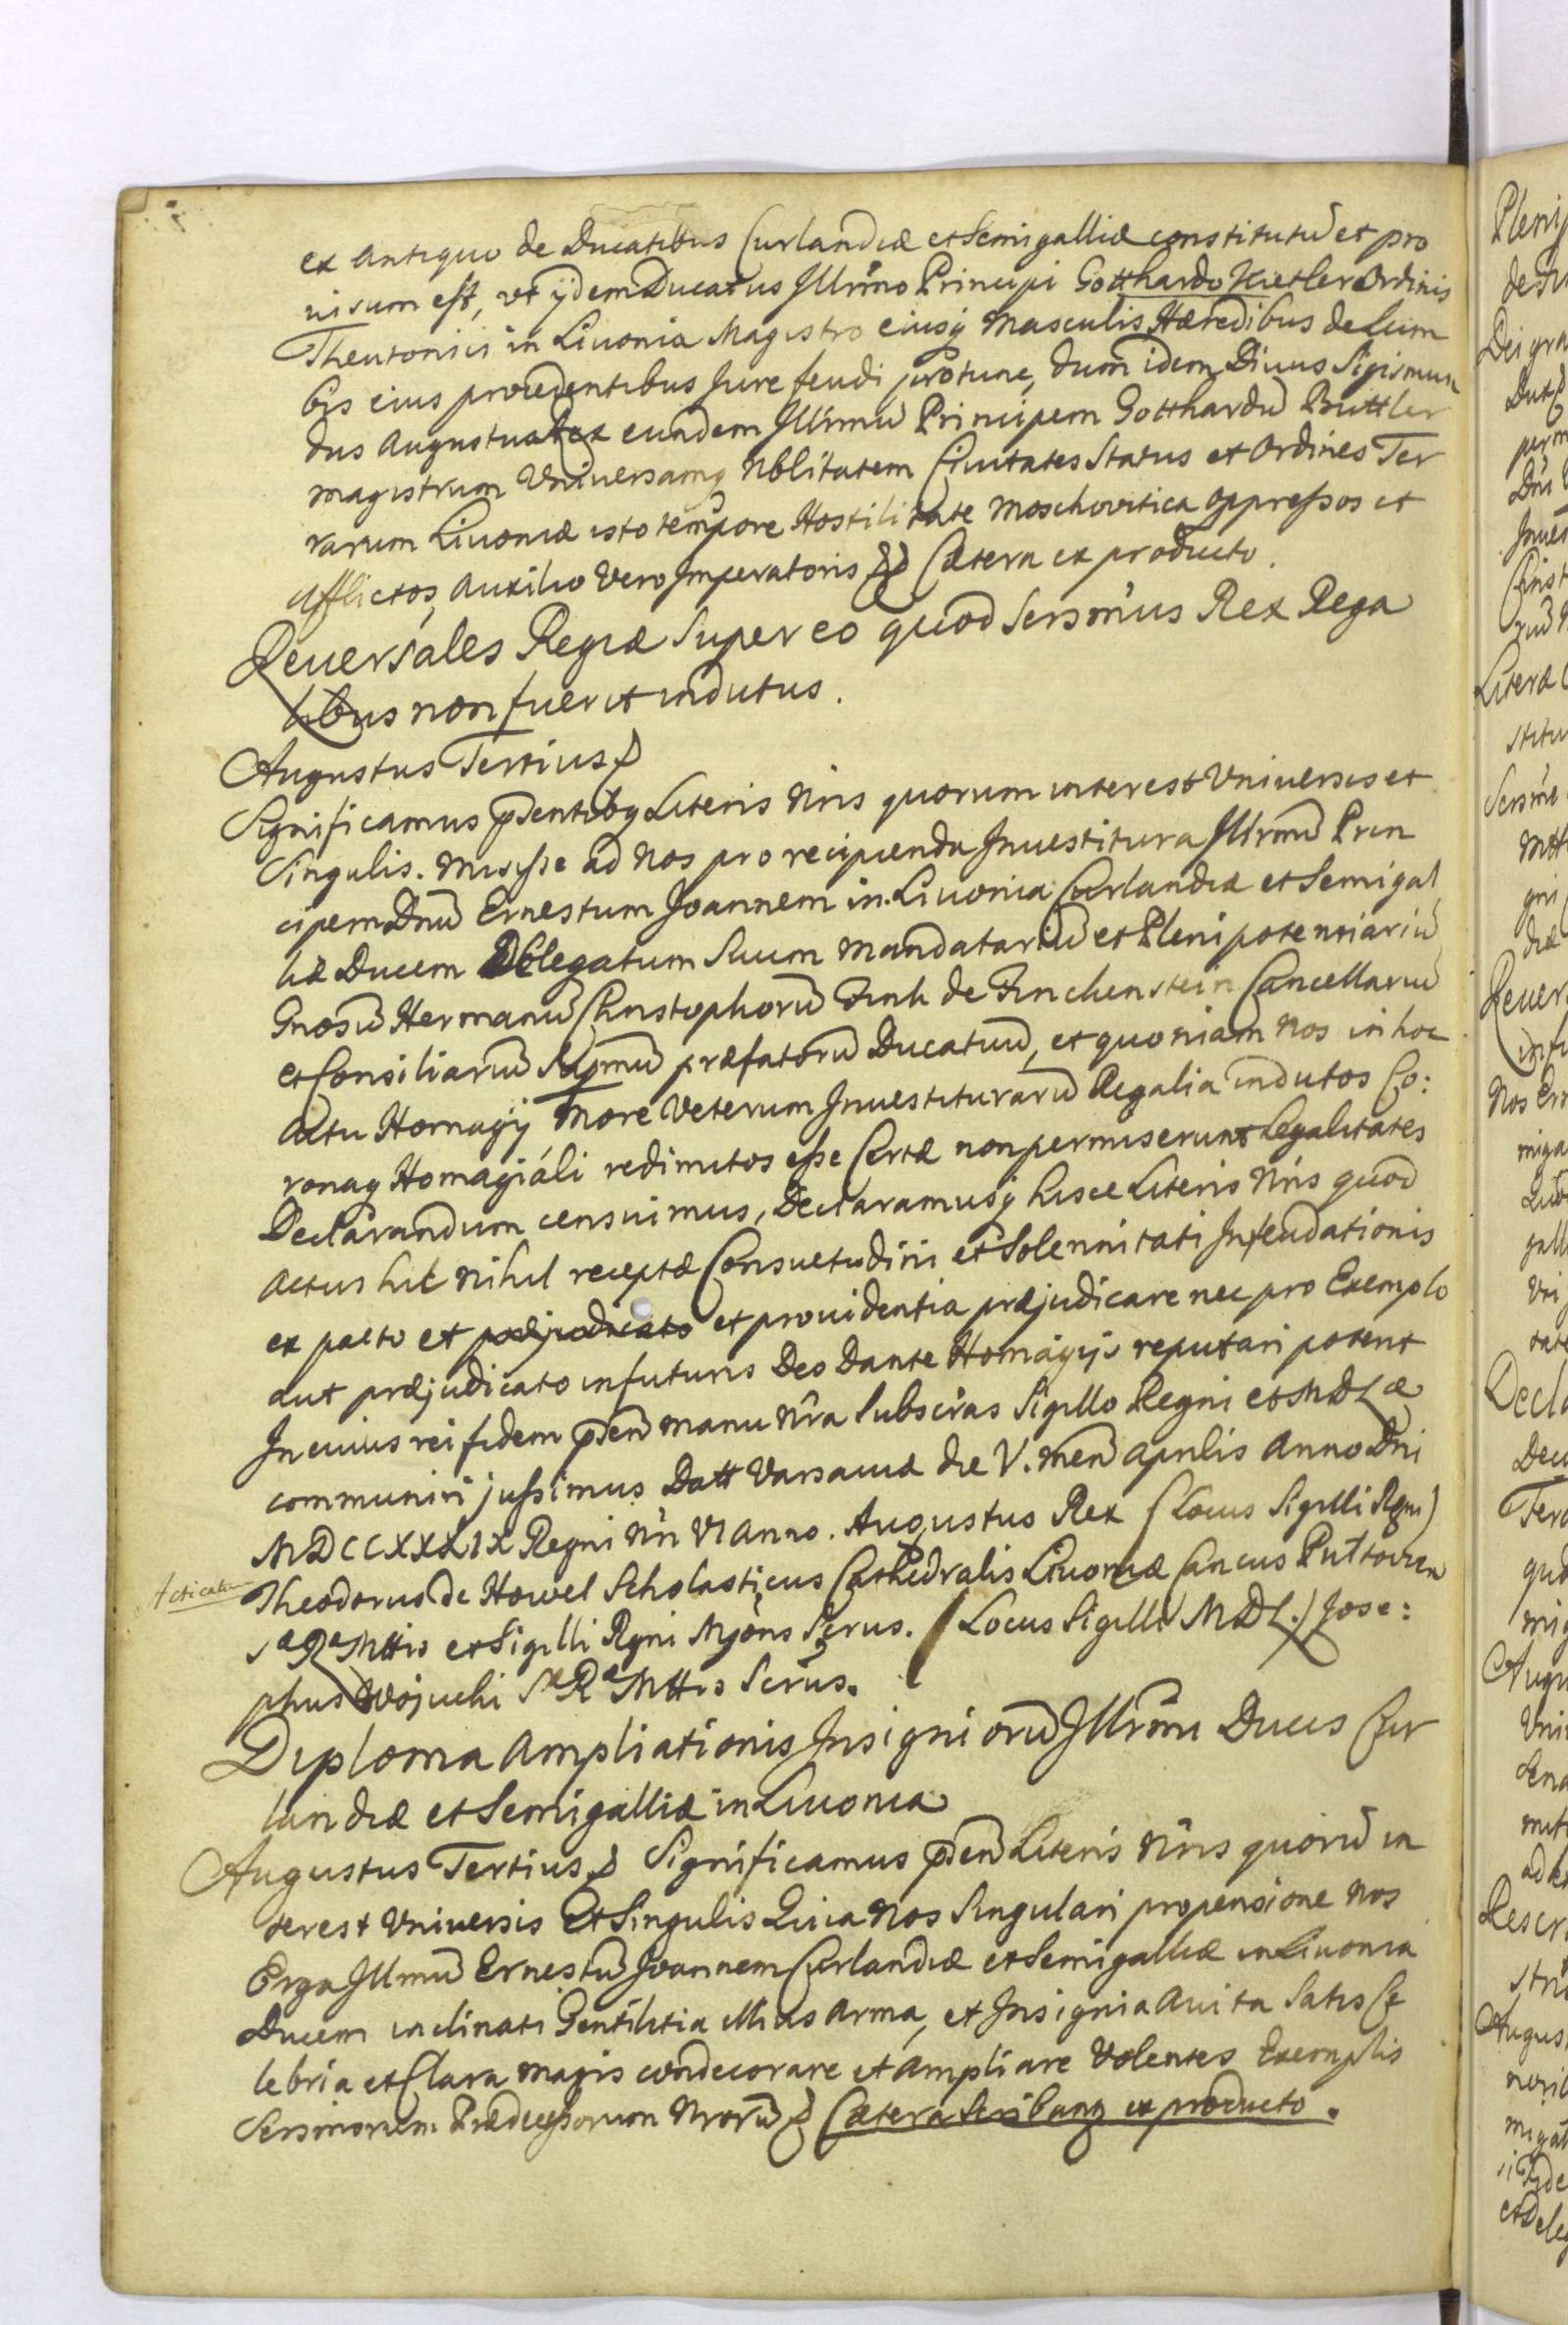 ex antiquo de Ducatibus Curlandiæ et Semigalliæ constitutū et pro
uisum est, vt ijdem Ducatus Illrmo Principi Gotthardo Kietler Ordinis
Theutonici in Liuonia Magistro eiusq masculis Hæredibus de Lum
bis eius procedentibus Jure feudi protunc, dum idem Diuus Sigismun
dus Augustus Rex eundem Illrmū Principem Gotthardū Buttler
magistrum Vniuersamq Nblitatem Ciuitates Status et Ordines Ter
rarum Liuoniæ isto tempore Hostilitate Moschovitica oppressos et
afflictos, Auxilio Vero Imperatoris Cætera ex producto.
Reuersales Regiæ Super eo quod Sersmus Rex Rega
libus non fuerit indutus.
Augustus Tertius
Significamus pntibq Literis Nris quorum interest Vniuersis et
Singulis. Misisse ad Nos pro recipienda Inuestitura Illrmū Prin
cipem Dnū Ernestum Joannem in Liuonia Curlandiæ et Semigal
liæ Ducem Ablegatum Suum Mandatariū et Plenipotentiariū
Gnosū Hermanū Christophorū Finh de Finchenstein Cancellariū
et Consiliariū Supmū præfatorū Ducatuū, et quoniam Nos in hoc
actu Homagij More Veterum Inuestiturarū Regalia indutos Co:
ronaq Homagiáli redimitos esse Certæ non permiserunt Legalitates
Declarandum censuimus, Declaramusq hisce Literis Nris quod
actus hic nihil receptæ Consuetudini et Solennitati Infeudationis
ex pacto et præjudicato et prouidentia præjudicare nec pro Exemplo
aut præjudicato in futuris Deo Dante Homágijs reputari potent
In cuius rei fidem pntes manu Nra Subscras Sigillo Regni et MDLæ
communiri jussimus Datt Varsauiæ die V. Men Aprilis Anno Dni
MDCCXXXIX Regni Nri VI Anno. Augustus Rex (Locus Sigilli Rgni)
Acticatum
Theodorus de Howel Scholasticus Cathedralis Liuoniæ Cancus Puttovien
Sæ Ræ Mttis et Sigilli Rgni Mjoris Scrus. (Locus Sigilli MDL.) Jose:
phus Wojucki Sæ Ræ Mttis Scrus.
Diploma Ampliationis Insigniorū Illrmi Ducis Cur
landiæ et Semigalliæ in Liuonia
Augustus Tertius Significamus pnten Literis Nris quorū in
terest Vniuersis Et Singulis Quia Nos Singulari propensione Nos
Erga Illmū Ernestū Joannem Curlandiæ et Semigalliæ in Liuonia
Ducem inclinati Gentilitia illius Arma, et Insignia Auita Satis Ce
lebria et Clara magis condecorare et ampliare Volentes Exemplis
Sersmorum Prædecessorum Nrorū Cætera Scribanq ex producto.